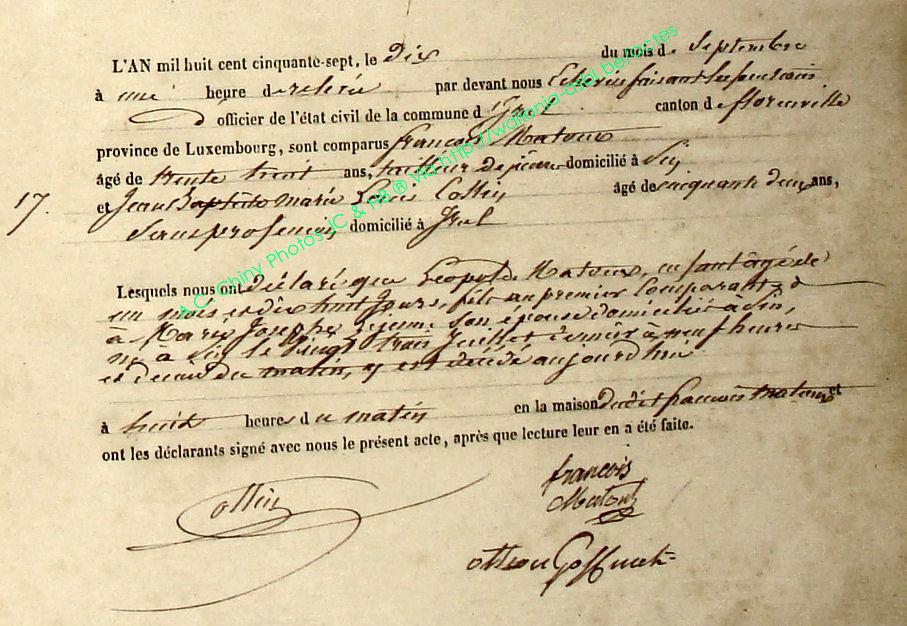 L'AN mil huit cent cinquante-sept, le Dix du mois de Septembre
à une heure de relevée par devant nous Echevin faisant les fonctions
D' officier de l'état civil de la commune d' Izel canton de florenville
province de Luxembourg, sont comparus françois Matoux
âgé de trente huit ans, tailleur de pierre domicilié à Sin
17. et Jean Baptiste marie Louis Collin âgé de cinquante deux ans,
Sans profession, domicilié à Izel
Lesquels nous ont Déclaré que Léopold Matoux, enfant âgé de
un mois et dix huit jours, fils au premier Comparant et
à Marie Josephe Lejeune son épouse domiciliés à Sin,
né à Sin le Vingt trois Juillet dernier à neuf heures
et demi du matin, y est décédé aujourd'hui
à huit heures du matin en la maison dudit françois Matoux et
ont les déclarants signé avec nous le présent acte, après que lecture leur en a été faite.
Collin
francois
Matoux
Goffinet
A.C. Chiny Photos JC & PB ® via http://wallonia-asbl.be/actes